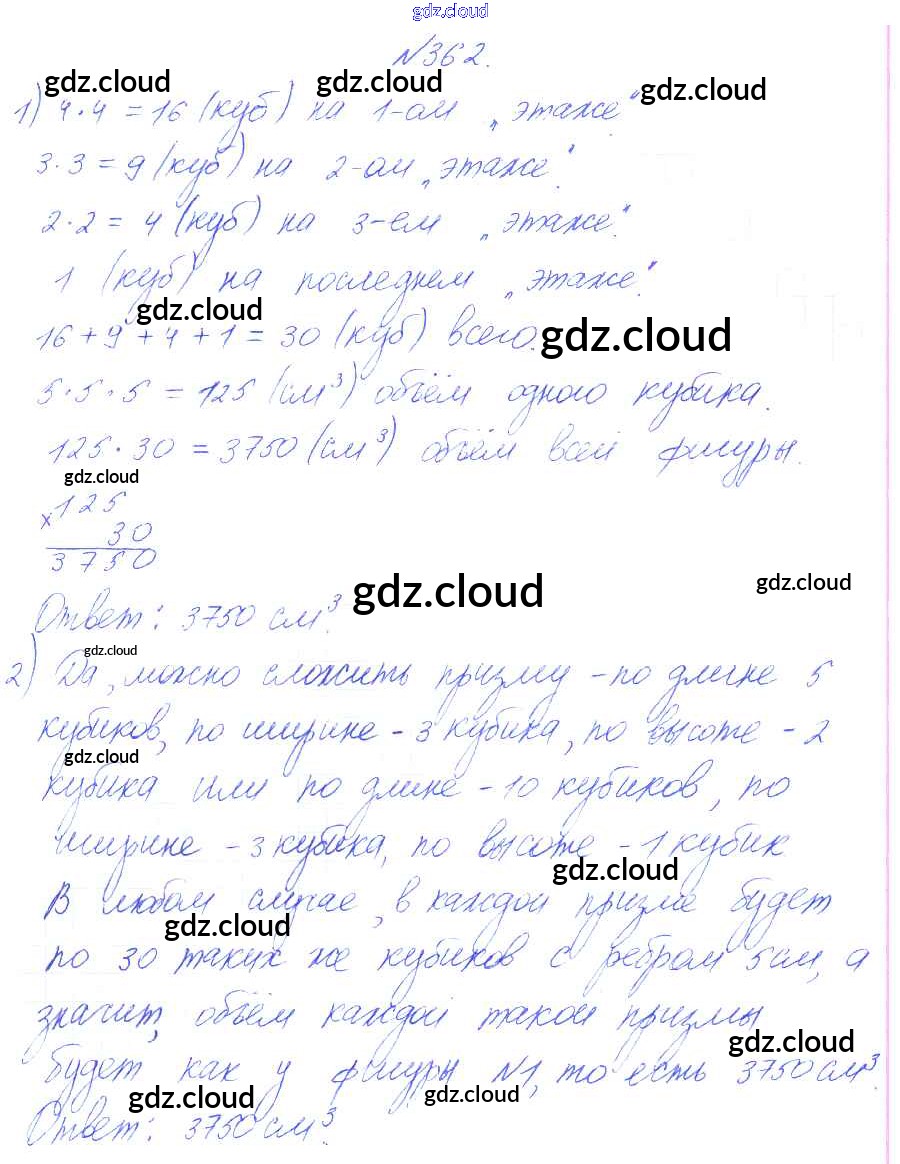 gdz.cloud
№362.
gdz.cloud gdz.cloud gdz.cloud
1) 4·4 = 16 (куб) на 1-ом „этаже"
3·3 = 9 (куб) на 2-ом „этаже".
2·2 = 4 (куб) на 3-ем „этаже".
1 (куб) на последнем „этаже".
gdz.cloud
16 + 9 + 4 + 1 = 30 (куб) всего. gdz.cloud
5·5·5 = 125 (см³) объём одного кубика.
125·30 = 3750 (см³) объём всей фигуры.
gdz.cloud
x 125
30
3750
gdz.cloud gdz.cloud
Ответ: 3750 см³.
gdz.cloud
2) Да, можно сложить призму – по длине 5
кубиков, по ширине – 3 кубика, по высоте – 2
gdz.cloud
кубика или по длине – 10 кубиков, по
ширине – 3 кубика, по высоте – 1 кубик
gdz.cloud
В любом случае, в каждой призме будет
gdz.cloud
по 30 таких же кубиков с ребром 5 см, а
значит, объём каждой такой призмы
gdz.cloud
будет как у фигуры №1, то есть 3750 см³.
gdz.cloud gdz.cloud
Ответ: 3750 см³.